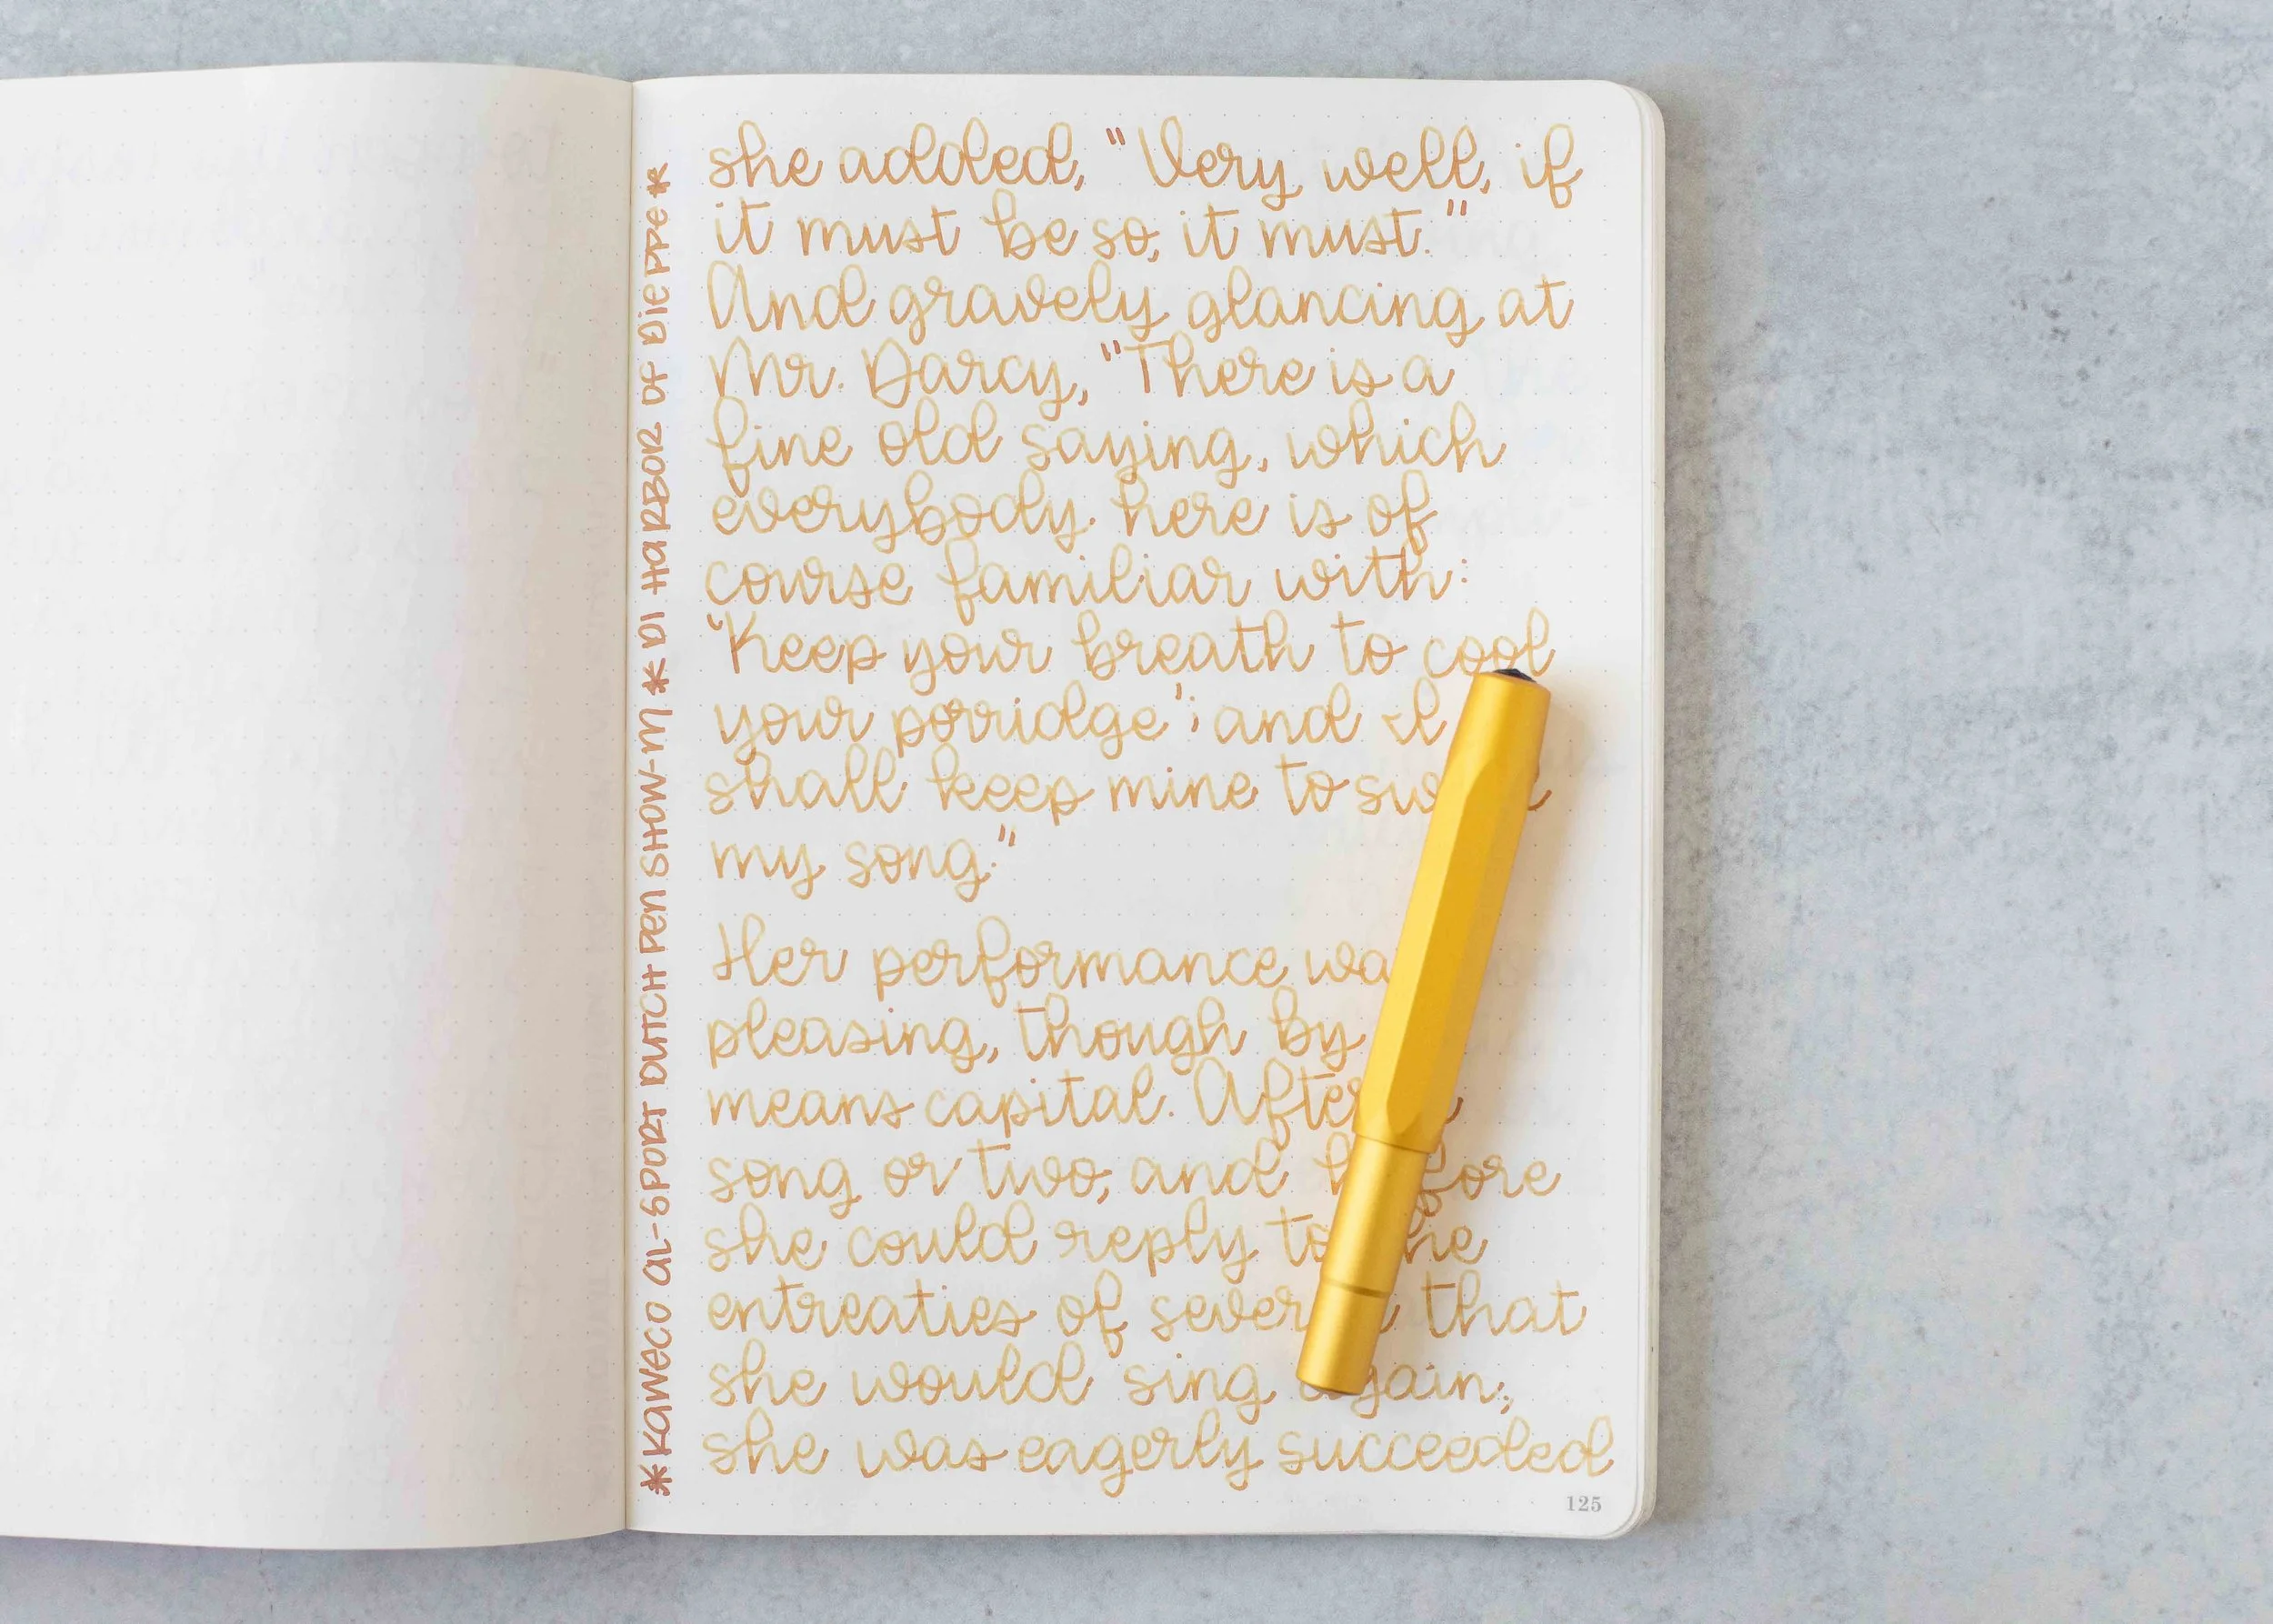 *Kaweco AL-Sport Dutch Pen Show-M * DI Harbor of Dieppe *
she added, "Very well, if
it must be so, it must."
And gravely glancing at
Mr. Darcy, "There is a
fine old saying, which
everybody here is of
course familiar with:
'Keep your breath to cool
your porridge'; and I
shall keep mine to
my song."
Her performance
pleasing, though by
means capital. After
song or two, and
she could reply
entreaties of that
she would sing again;
she was eagerly succeeded
125